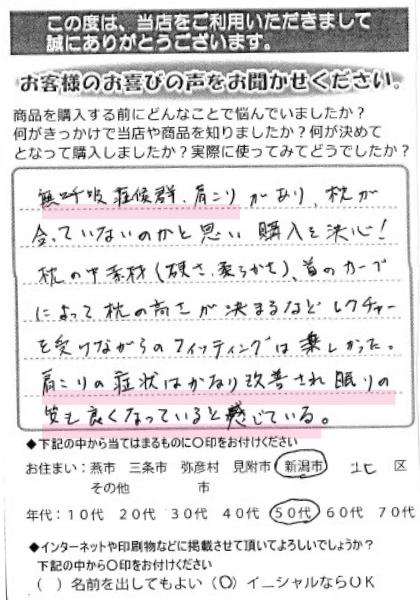 この度は、当店をご利用いただきまして
誠にありがとうございます。
お客様のお喜びの声をお聞かせください。
商品を購入する前にどんなことで悩んでいましたか？
何がきっかけで当店や商品を知りましたか？何が決めて
となって購入しましたか？実際に使ってみてどうでしたか？
無呼吸症候群、肩こりがあり、枕が
合っていないのかと思い購入を決心！
枕の中素材（硬さ、柔らかさ）、首のカーブ
によって枕の高さが決まるなどレクチャー
を受けながらのフィッティングは楽しかった。
肩こりの症状はかなり改善され眠りの
質も良くなっていると感じている。
◆下記の中から当てはまるものに〇印をお付けください
お住まい：燕市 三条市 弥彦村 見附市 新潟市 北 区
その他 市
年代：１０代 ２０代 ３０代 ４０代 ５０代 ６０代 ７０代
◆インターネットや印刷物などに掲載させて頂いてよろしいでしょうか？
下記の中から〇印をお付けください
（ ）名前を出してもよい（〇）イニシャルならＯＫ